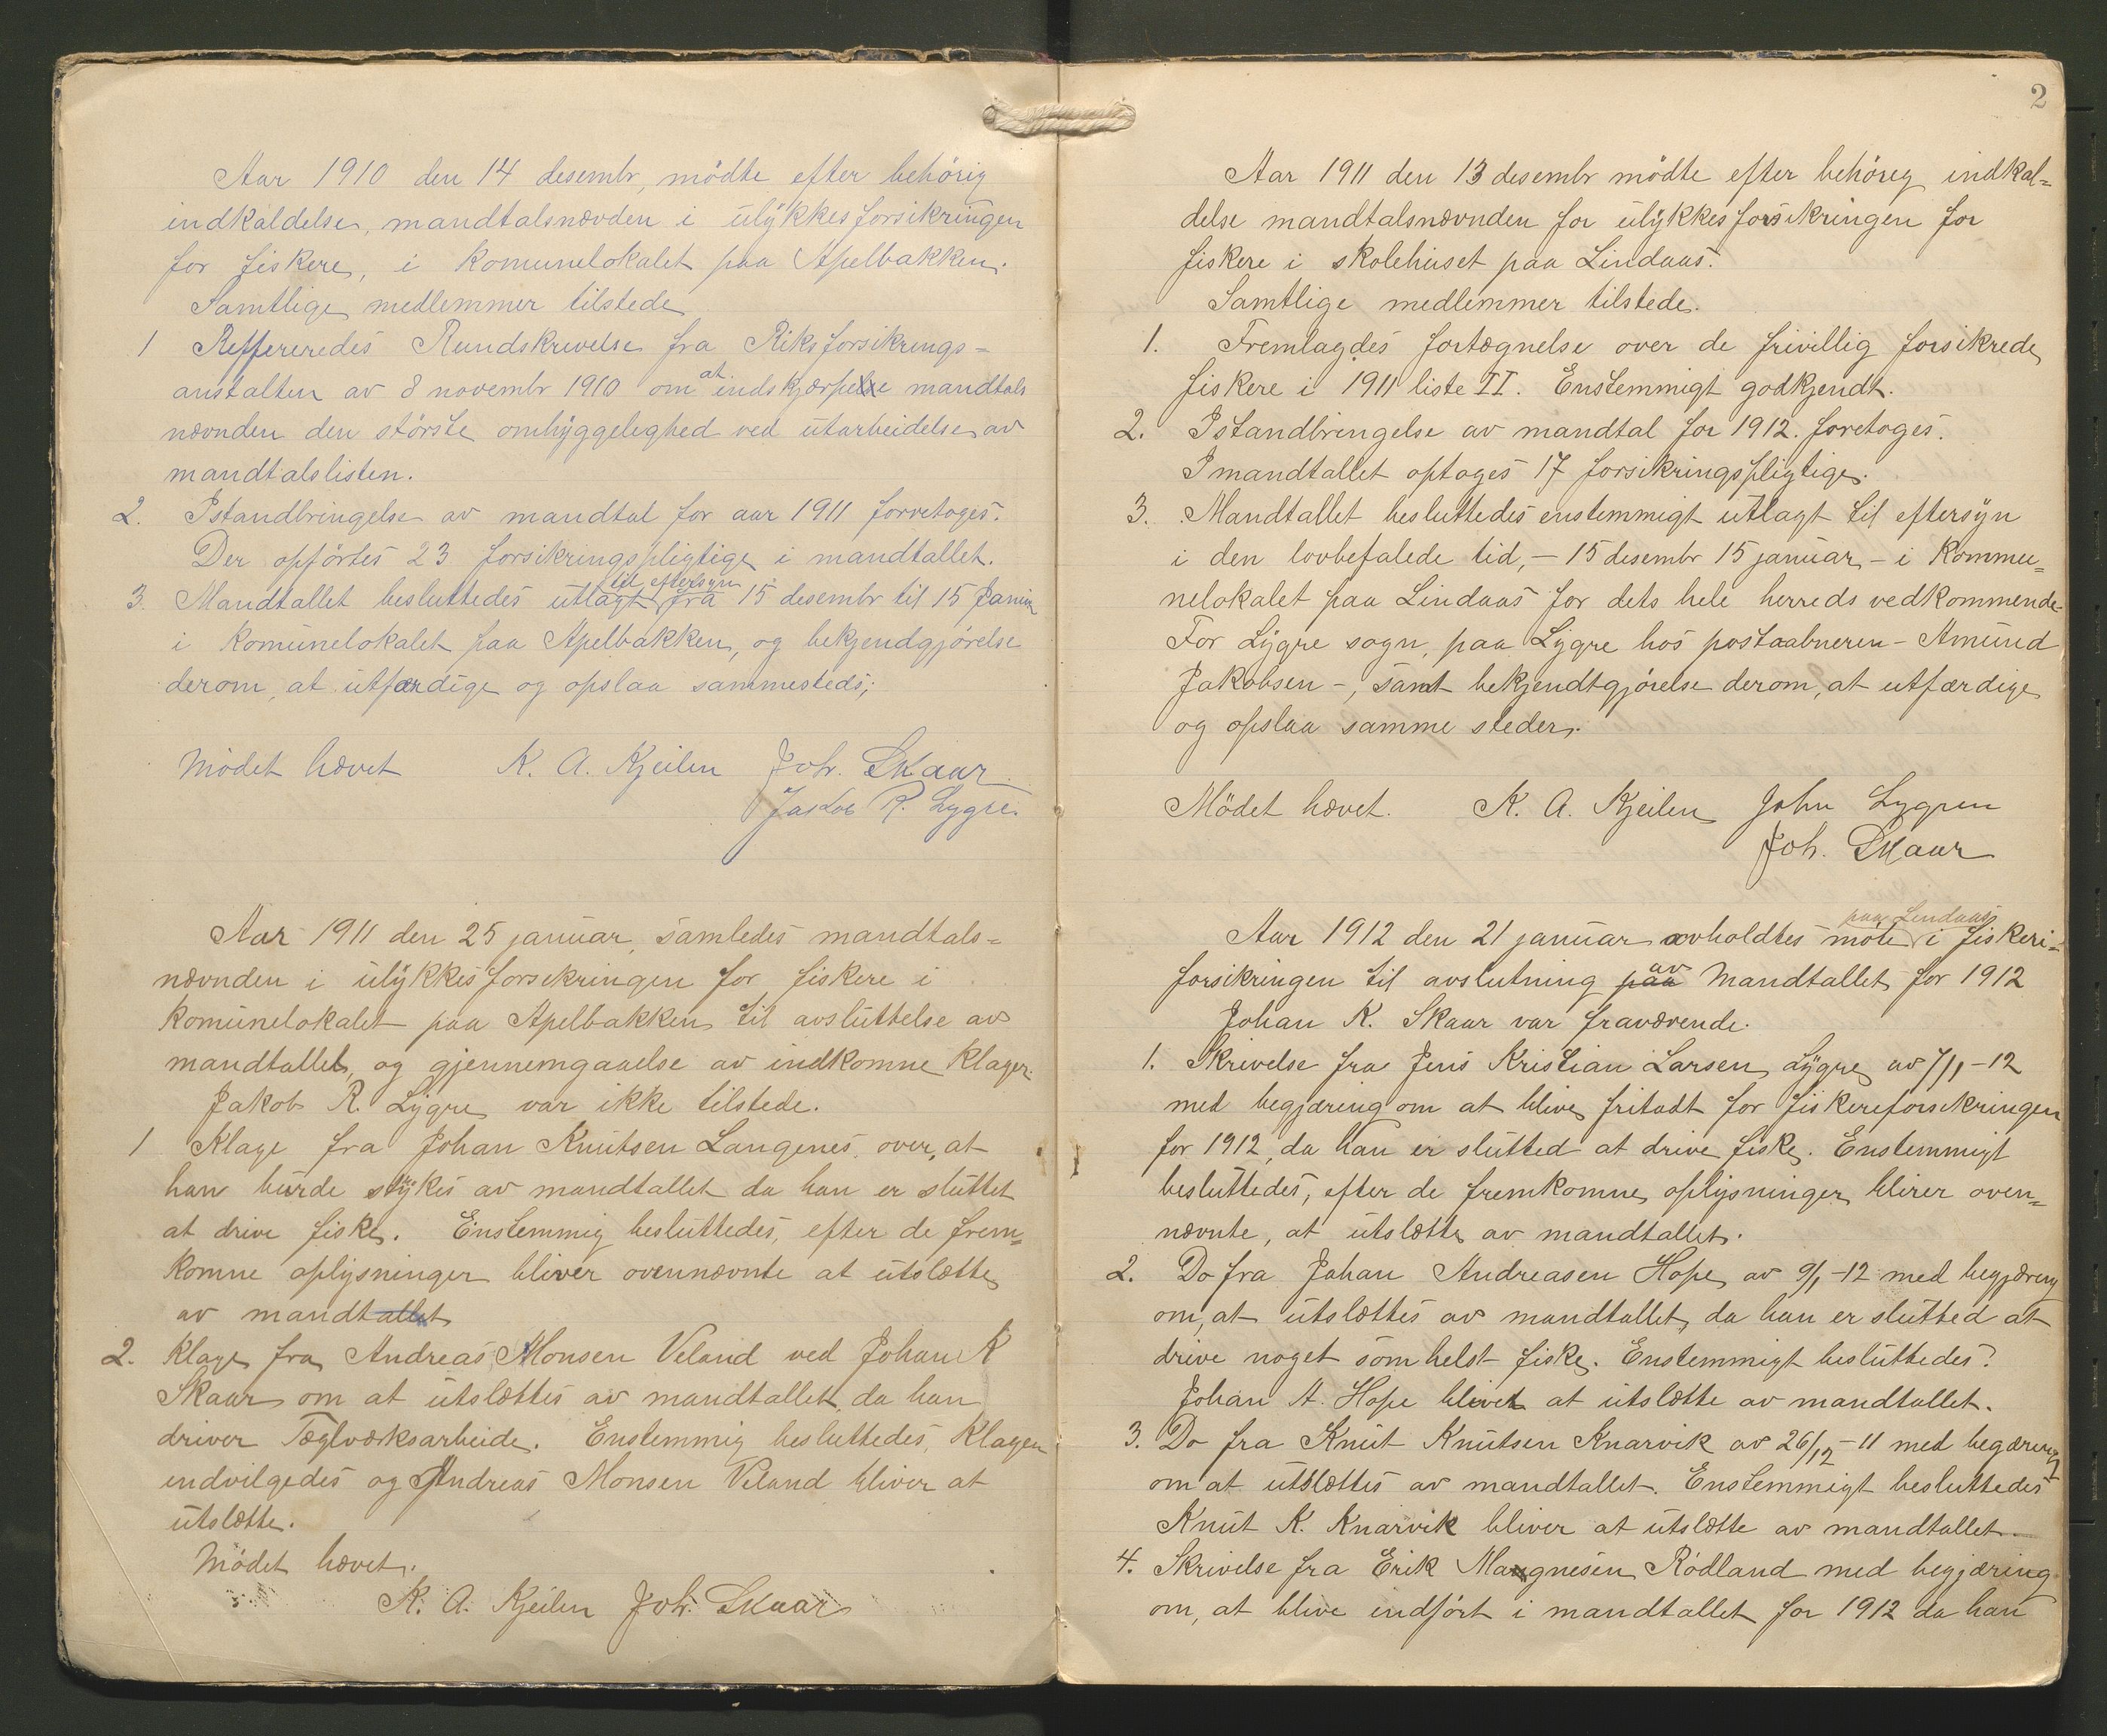 Aar 1910 den 14 desembr, mödte efter behörig
indkaldelse, mandtalsnævden i ulykkesforsikringen
for fiskere, i Komunelokalet paa Apelbakken.
Samtlige medlemmer tilstede
1 Reffereredes Rundskrivelse fra Riksforsikrings-
anstalten av 8 novembr 1910 om at indskjærpe mandtals
nævnden den störste omhyggelighed ved utarbeidelse av
mandtalslisten.
2. Istandbringelse av mandtal for aar 1911 forretoges.
Der opförtes 23 forsikringspligtige i mandtallet.
3. Mandtallet besluttedes utlagt til eftersyn fra 15 desembr til 15 Januar
i Komunelokalet paa Apelbakken, og bekjendgjörelse
derom, at utfærdige og opslaa sammesteds;
Mödet hævet K. A. Kjeilen Joh. Skaar
Jakob R. Lygre.
Aar 1911 den 25 januar, samledes mandtals-
nævnden i ulykkesforsekringen for fiskere i
Komunelokalet paa Apelbakken til avsluttelse av
mandtallet, og gjennemgaaelse av indkomne Klager.
Jakob R. Lygre var ikke tilstede.
1 Klage fra Johan Knutsen Langenes over, at
han burde strykes av mandtallet da han er sluttet
at drive fiske. Enstemmig besluttedes, efter de frem=
komne oplysninger bliver ovennævnte at utslætte
av mandtallet
2. Klage fra Andreas Monsen Veland ved Johan K
Skaar om at utslættes av mandtallet, da han
driver Tæglværksarbeide. Enstemmig besluttedes, Klagen
indvilgedes og Andreas Monsen Veland bliver at
utslætte.
Mödet hævet.
K. A. Kjeilen Joh. Skaar
2
Aar 1911 den 13 desembr mödte efter behöreg indkal=
delse mandtalsnævnden for ulykkesforsikringen for
fiskere i skolehuset paa Lindaas.
Samtlige medlemmer tilstede.
1. Fremlagdes fortægnelse over de frivillig forsikrede
fiskere i 1911 liste II. Enstemmigt godkjendt.
2. Istandbringelse av mandtal for 1912. foretoges.
I mandtallet optoges 17 forsikringspligtige.
3. Mandtallet besluttedes enstemmigt utlagt til eftersyn
i den lovbefalede tid, - 15 desembr 15 januar - i Kommu=
nelokalet paa Lindaas for dets hele herreds vedkommende.
For Lygre sogn, paa Lygre hos postaabneren - Amund
Jakobsen -, samt bekjendtgjörelse derom, at utfærdige
og opslaa samme steder.
Mödet hævet. K. A. Kjeilen John Lygren
Joh. Skaar
Aar 1912 den 21 januar avholdtes möte paa Lindaas i fiskeri-
forsikringen til avslutning paa av Mandtallet for 1912
Johan K. Skaar var fraværende.
1. Skrivelse fra Jens Kristian Larsen Lygre av 7/1-12
med begjæring om at blive fritadt for fiskereforsikringen
for 1912, da han er slutted at drive fiske. Enstemmigt
besluttedes, efter de fremkomne oplysninger blirer oven=
nævnte, at utslætte av mandtallet.
2. Do fra Johan Andreasen Hope av 9/1-12 med begjæring
om, at utslættes av mandtallet, da han er slutted at
drive noget som helst fiske. Enstemmigt besluttedes:
Johan A. Hope bliver at utslætte av mandtallet.
3. Do fra Knut Knutsen Knarvik av 26/12-11 med begæring
om at utslættes av mandtallet. Enstemmigt besluttedes
Knut K. Knarvik bliver at utslætte av mandtallet.
4. Skrivelse fra Erik Magnesen Rödland med begjæring
om, at blive indfört i mandtallet for 1912 da han